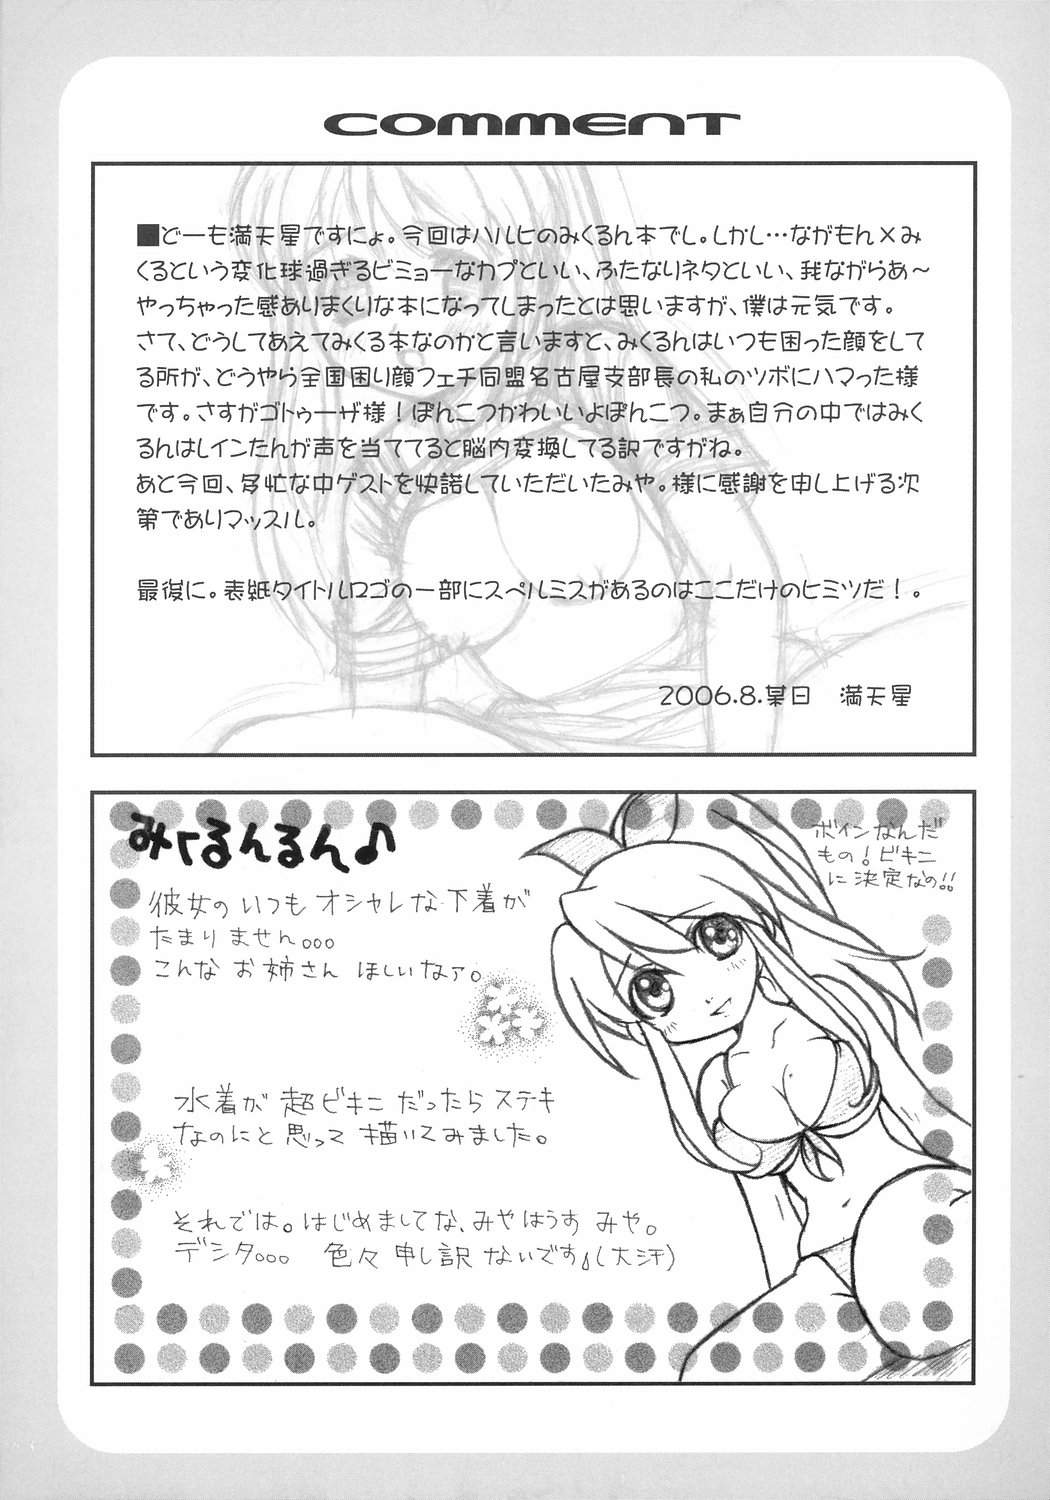 COMMENT
■どーも満天星ですにょ。今回はハルヒのみくるん本でし。しかし…ながもん×み
くるという変化球過ぎるビミョーなカプといい、ふたなりネタといい、我ながらあ～
やっちゃった感ありまくりな本になってしまったとは思いますが、僕は元気です。
さて、どうしてあえてみくる本なのかと言いますと、みくるんはいつも困った顔をして
る所が、どうやら全国困り顔フェチ同盟名古屋支部長の私のツボにハマった様
です。さすがゴトゥーザ様！ぽんこつかわいいよぽんこつ。まぁ自分の中ではみく
るんはレインたんが声を当ててると脳内変換してる訳ですがね。
あと今回、多忙な中ゲストを快諾していただいたみや。様に感謝を申し上げる次
第でありマッスル。
最後に。表紙タイトルロゴの一部にスペルミスがあるのはここだけのヒミツだ！。
2006.8.某日　満天星
みくるんるん♪
彼女の いつも オシャレな 下着が
たまりません。。。
こんな お姉さん ほしいなァ。
水着が 超ビキニ だったら ステキ
なのにと 思って 描いてみました。
それでは。はじめましてな、みやはうす みや。
デシタ。。。 色々 申し訳 ないです♪(大汗)
ボインなんだ
もの！ビキニ
に決定なの!!